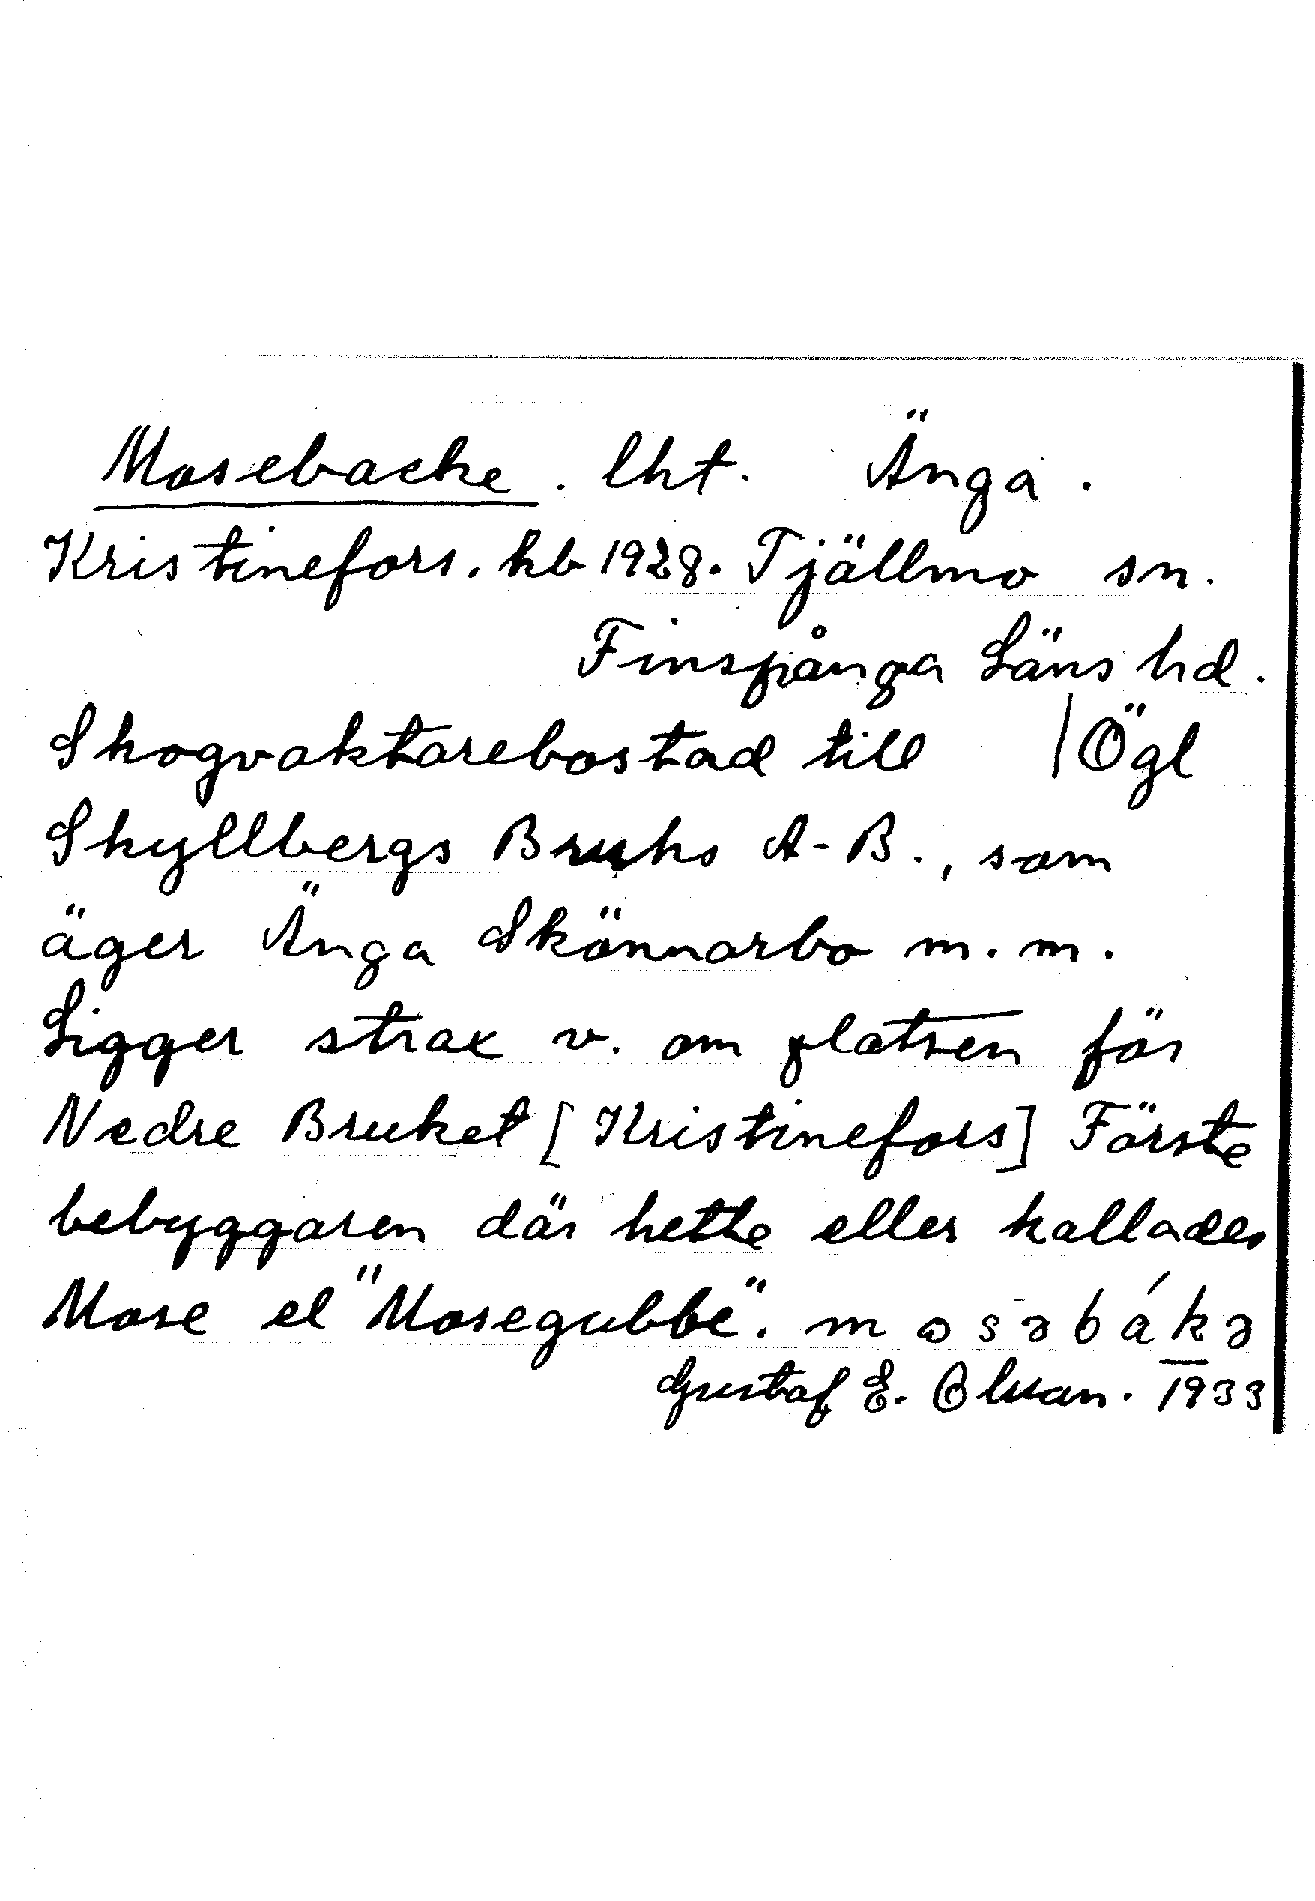 Mosebacke. lht. Änga.
Kristinefors. kb 1928. Tjällmo sn.
Finspånga Läns hd.
Skogvaktarebostad till /Ögl
Skyllbergs Bruks A-B., som
äger Änga Skönnarbo m.m.
Ligger strax v. om platsen för
Nedre Bruket [Kristinefors] Förste
bebyggaren där hette eller kallades
Mose el "Mosegubbe". mosəbákə
Gustaf E. Olsson. 1933